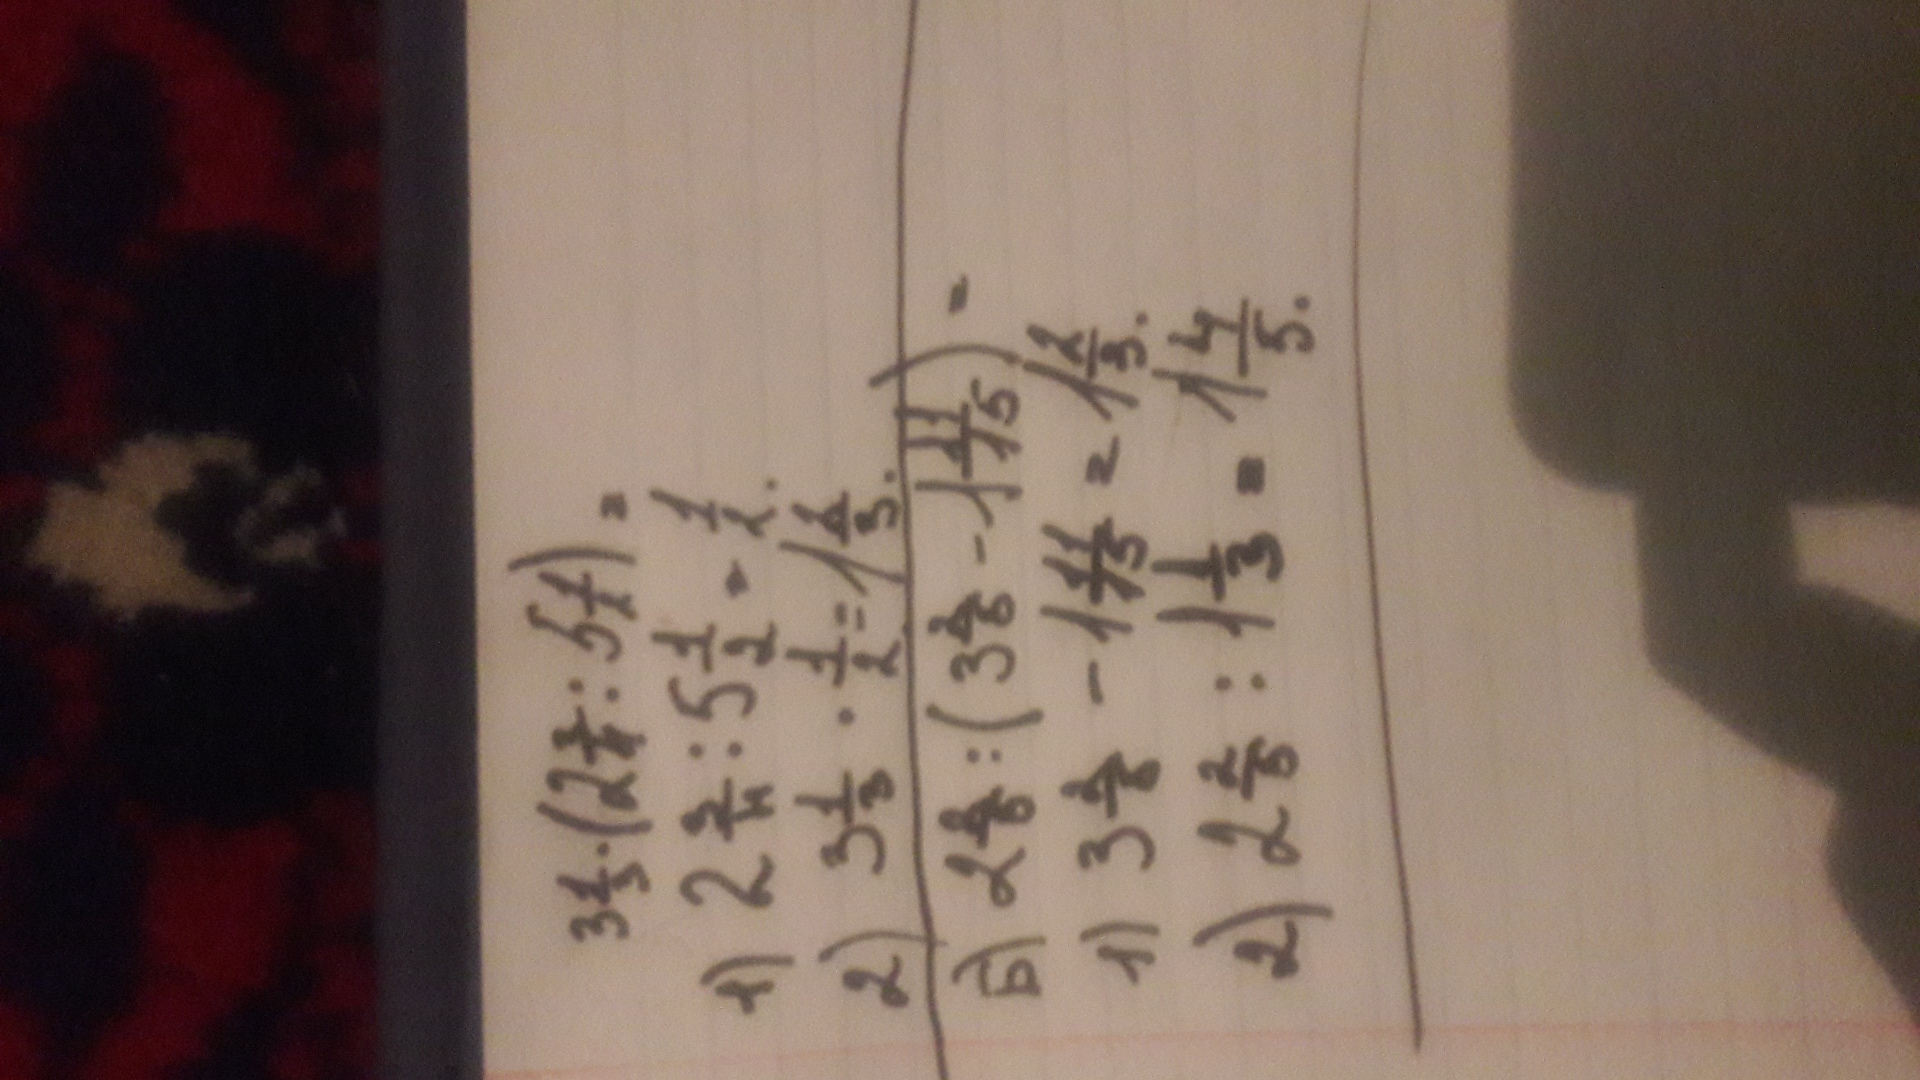 3 1/3 · (2 3/4 : 5 1/2) =
1) 2 3/4 : 5 1/2 = 1/2.
2) 3 1/3 · 1/2 = 1 2/3.
Б) 2 2/5 : (3 2/5 - 1 11/15) =
1) 3 2/5 - 1 11/15 = 1 2/3.
2) 2 2/5 : 1 1/3 = 1 4/5.